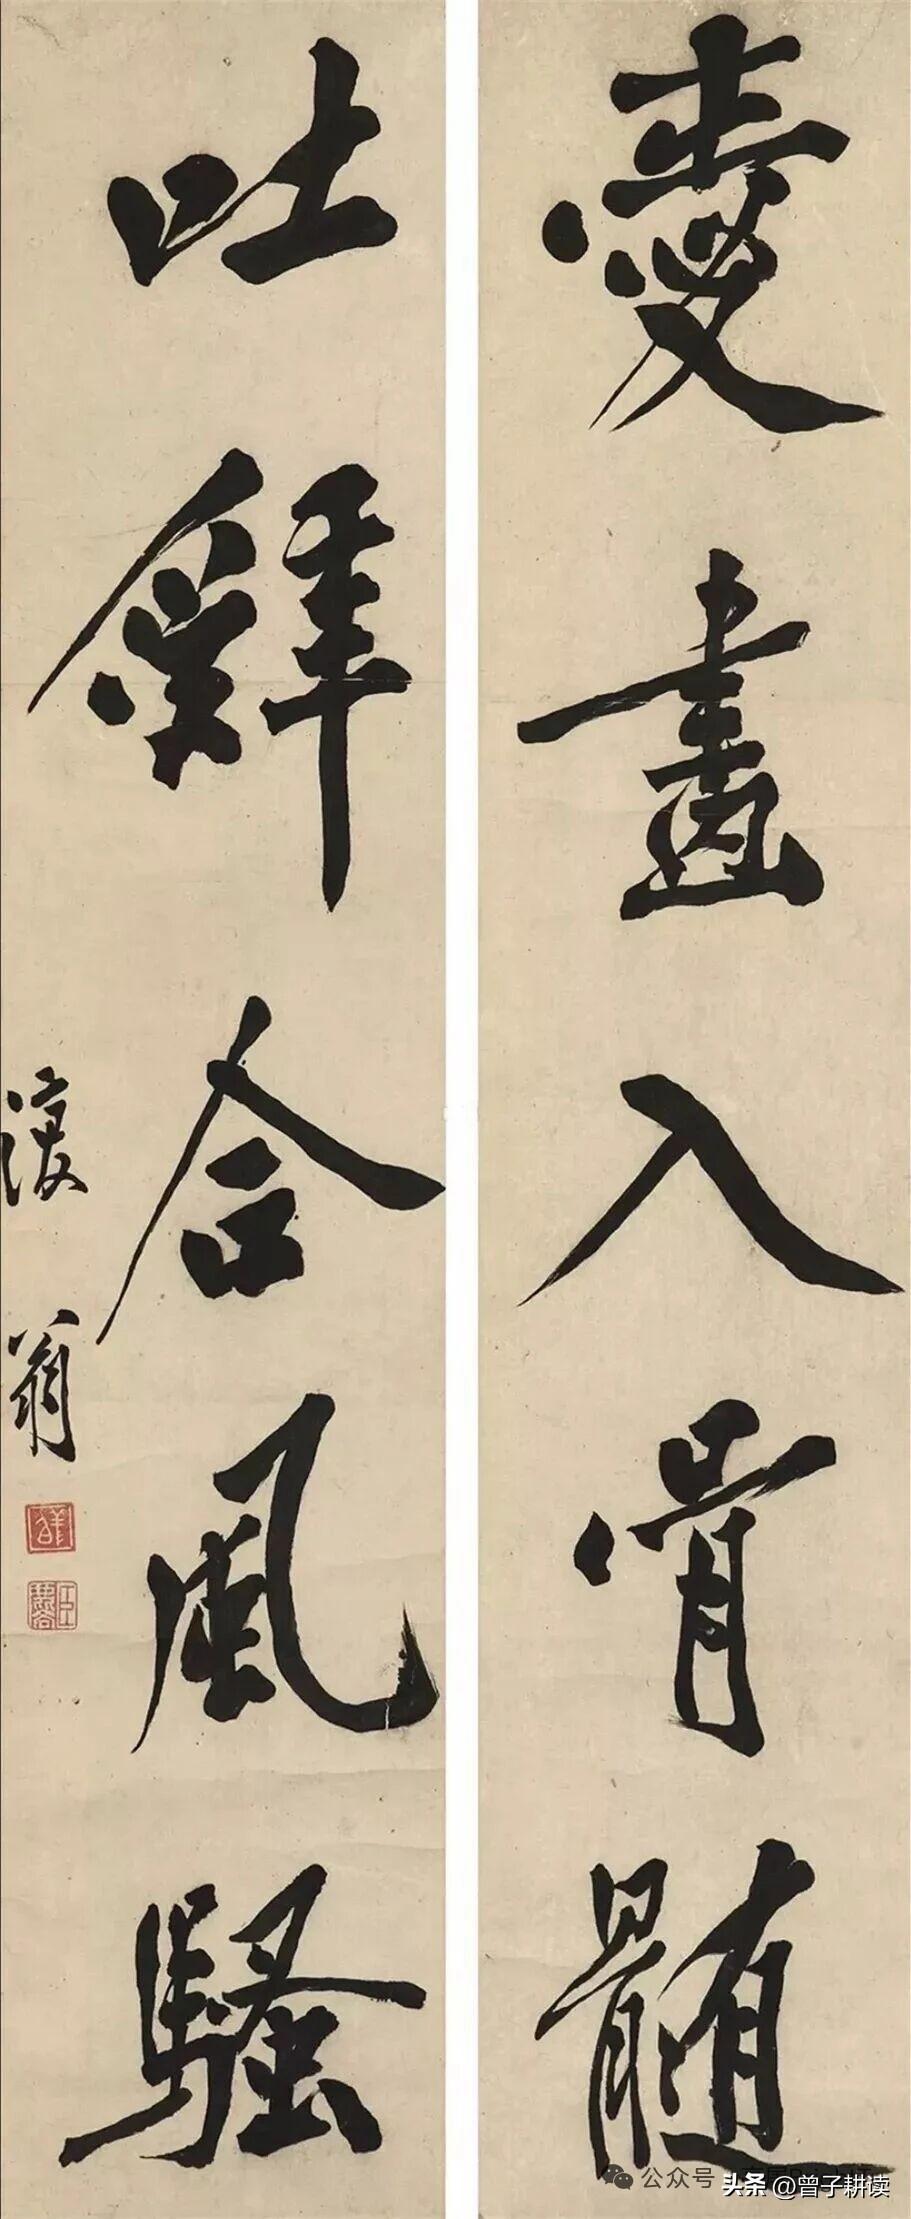 愛畫入骨髓
吐辭合風騷
翁
公众号
头条 @曾子耕读